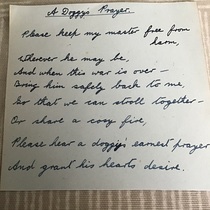 A Doggy's Prayer.
Please keep my master free from
harm,
Wherever he may be,
And when this war is over —
Bring him safely back to me,
So that we can stroll together —
Or share a cosy fire,
Please hear a doggy's earnest prayer
And grant his hearts desire.